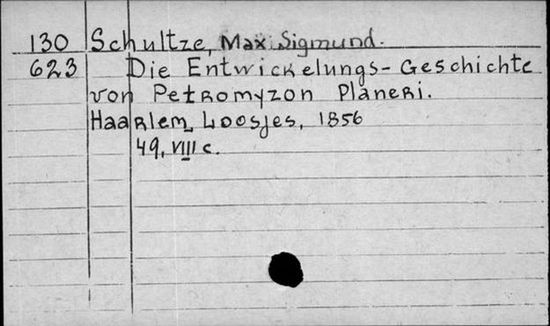 130 Schultze, Max Sigmund.
623 Die Entwickelungs-Geschichte
von Petromyzon Planeri.
Haarlem, Loosjes, 1856
49, VIII c.